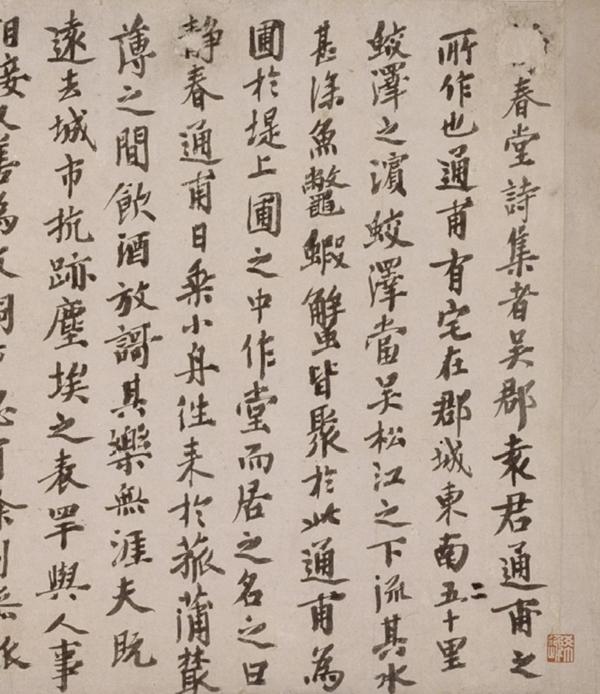 春堂詩集者吳郡袁君通甫之
所作也通甫有宅在郡城東南五十里
蛟澤之濱蛟澤當吳松江之下流其水
甚深魚鼈蝦蟹皆聚於此通甫為
圃於堤上圃之中作堂而居之名之曰
靜春通甫日乘小舟往来於菰蒲叢
薄之間飲酒放謌其樂無涯夫既
遠去城市抗跡塵埃之表罕與人事
接又善為文詞